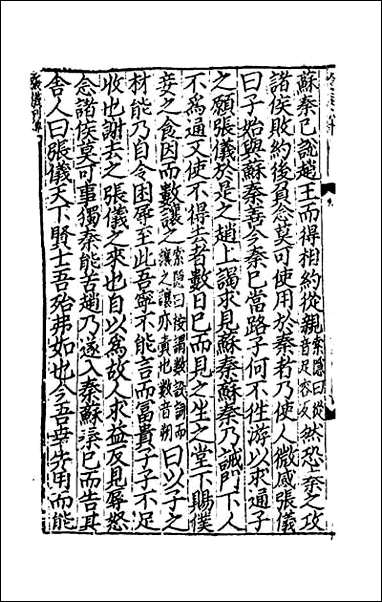 蘇秦已說趙王而得相約從親索隱曰從音足容反然恐秦之攻
諸侯敗約後負念莫可使用於秦者乃使人微感張儀
曰子始與蘇秦善今秦已當路子何不往游以求通子
之願張儀於是之趙上謁求見蘇秦蘇秦乃誡門下人
不爲通又使不得去者數日已而見之坐之堂下賜僕
妾之食因而數讓之索隱曰按謂數設詞而讓之讓亦責也數音朔曰以子之
材能乃自令困辱至此吾寧不能言而富貴子子不足
收也謝去之張儀之來也自以爲故人求益反見辱怒
念諸侯莫可事獨秦能苦趙乃遂入秦蘇秦已而告其
舍人曰張儀天下賢士吾殆弗如也今吾幸先用而能